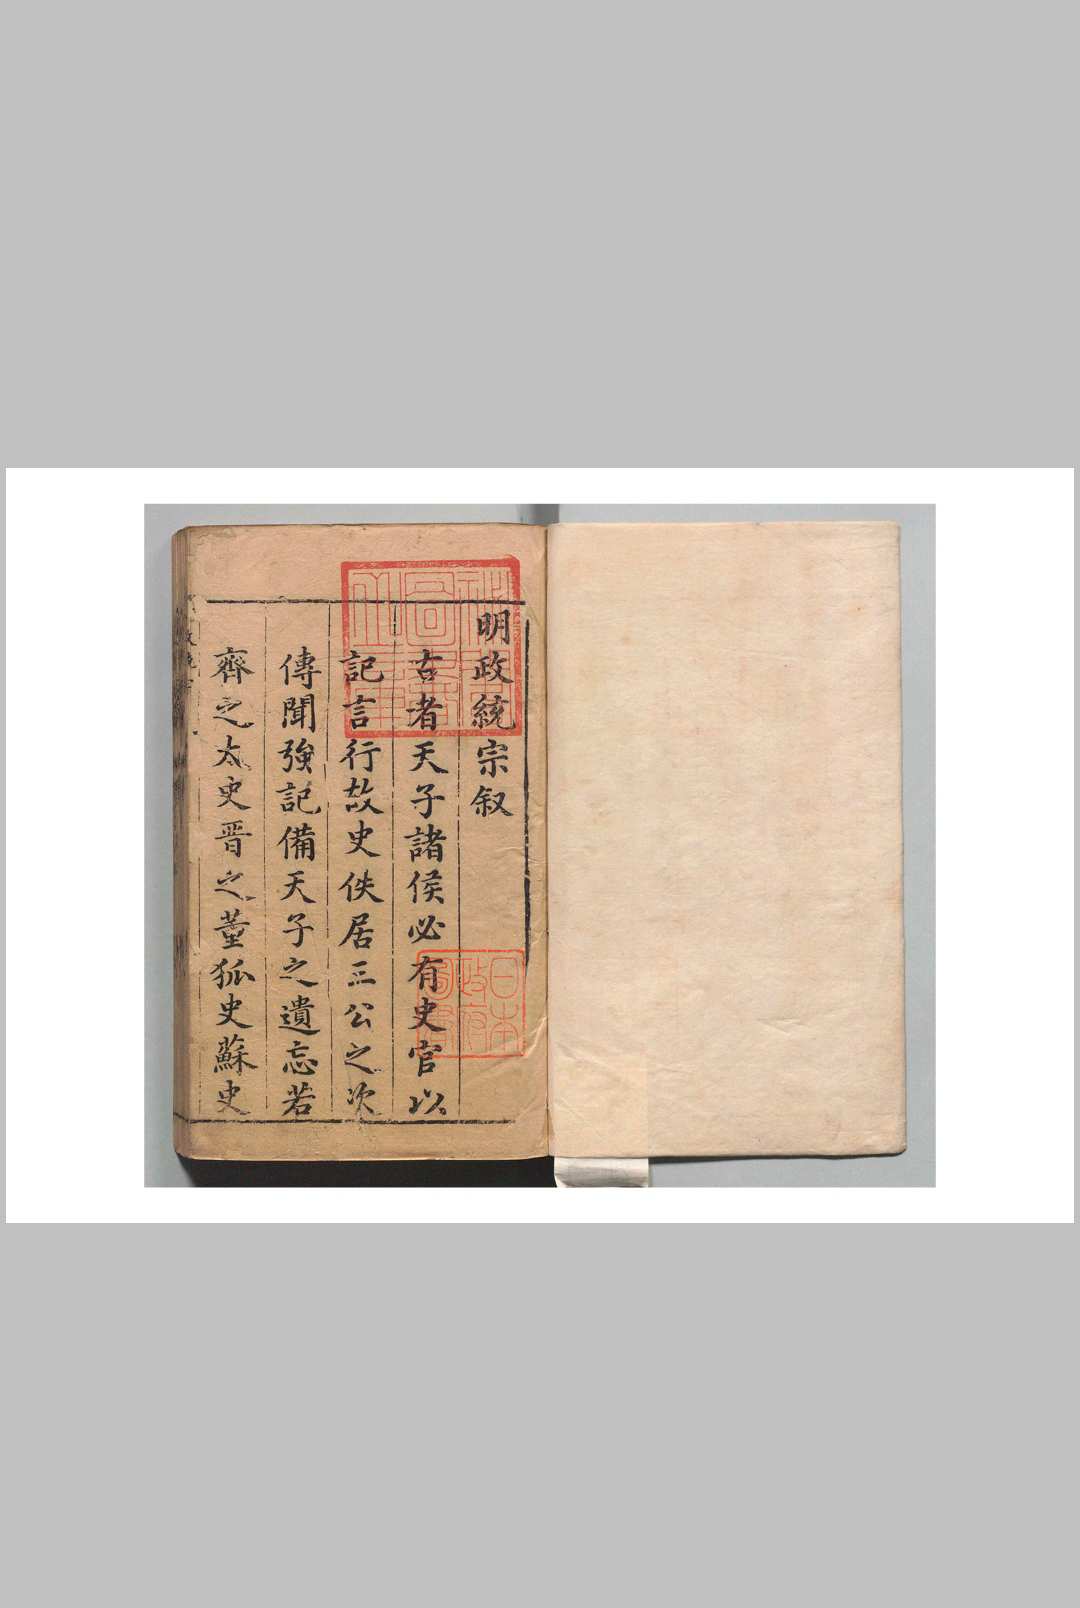 明政統宗叙
古者天子諸侯必有史官以
記言行故史佚居三公之次
傳聞強記備天子之遺忘若
齊之太史晋之董狐史蘇史
日本
政府
圖書